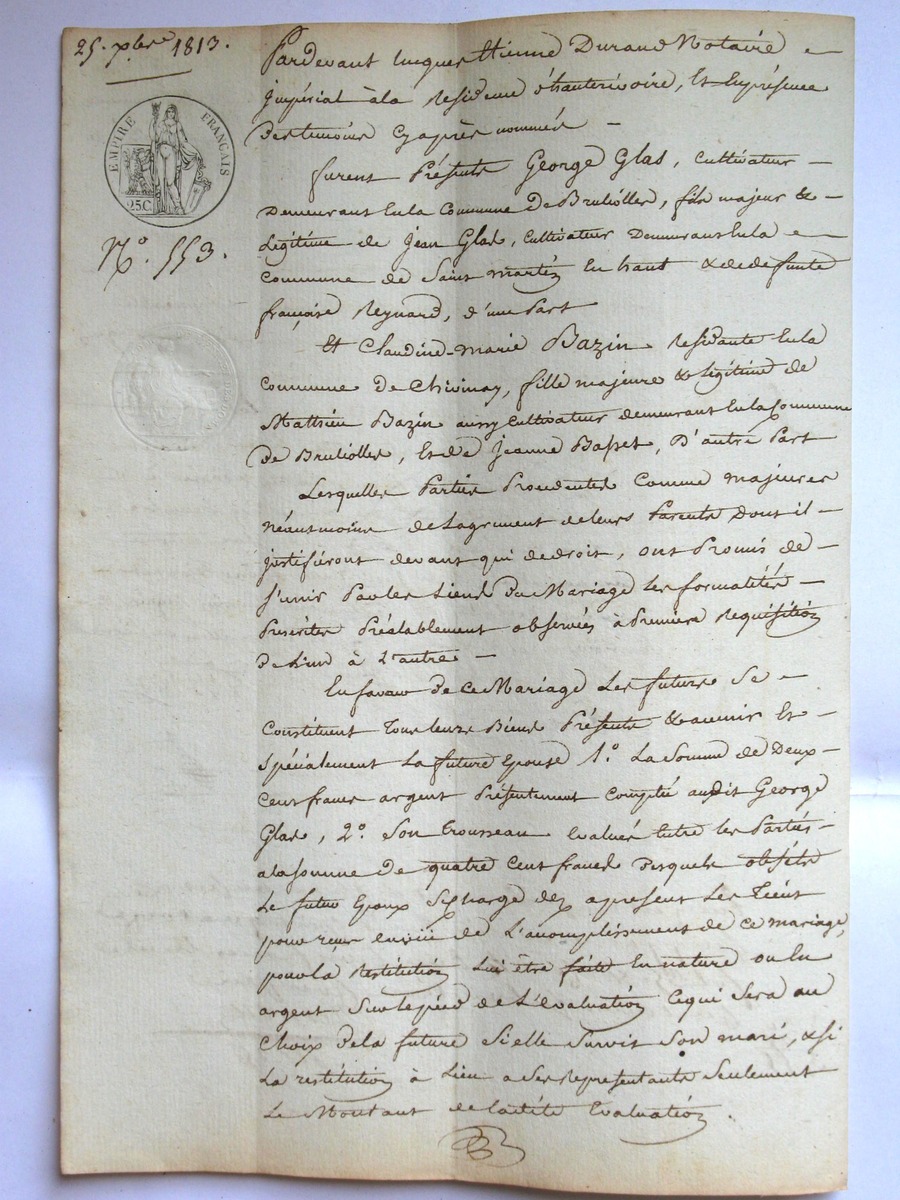 25. xbre 1813.
EMPIRE FRANÇAIS
25C.
No. 553.
Pardevant Jacques Etienne Durand Notaire
Impérial à la Residence d'hauterivoire, Et En présence
Des temoins cy après nommés
furent Présents George Glas, Cultivateur
Demeurant En la Commune De Brulioller, fils majeur &
Légitime de Jean Glas, Cultivateur Demeurant En la
Commune de Saint martin En haut & de defunte
françoise Reynard, d'une Part
Et Claudine-marie Bazin residante En la
Commune De Chivinay, fille majeure & légitime de
Matthieu Bazin aussy Cultivateur demeurant En la Commune
De Brulioller, Et de Jeanne Basset, D'autre Part
Lesquelles Parties Procedentes Comme majeures
néantmoins de Lagrément de leurs Parents Dont il
justifieront devant qui de droit, ont Promis de
s'unir Par les Liens Du Mariage Les formalités
Prescrites Préalablement observées à Premiere Requisition
De L'un à L'autre
En faveur De Ce Mariage Les futurs Se
Constituent Tous leurs Biens Présents & avenir Et
Spécialement La future Epouse 1o. La Somme de Deux
Cent francs argent Présentement Comptée audit George
Glas, 2o. Son trousseau Evalué Entre les Parties
a la somme De quatre Cent francs Desquels objets
Le futur Epoux Se charge dez apresent Les Tient
pour reçus en vüe de L'accomplissement de Ce mariage,
pour la Restitution Lui être faite En nature ou En
argent Sur le pied de L'évaluation Ce qui Sera au
Choix De la future Si elle Survit Son mari, & si
La restitution à Lieu a Ses Représentants Seulement
Le Montant de la dite Evaluation.